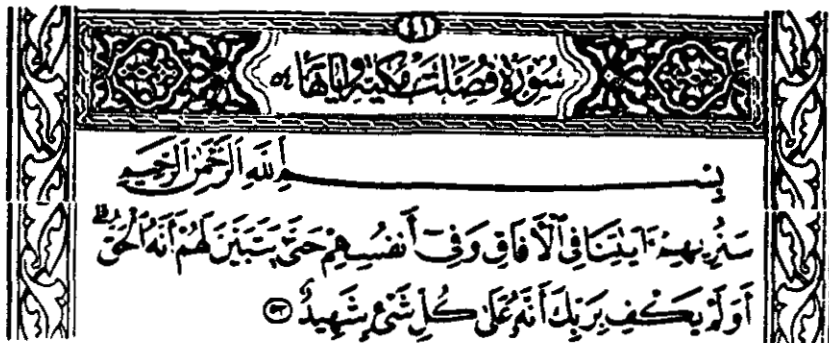 ٤١
سُورَةُ فُصِّلَتْ مَكِّيَّة وَآيَاتُهَا ٥٤
بِسْمِ ٱللَّهِ ٱلرَّحْمَٰنِ ٱلرَّحِيمِ
سَنُرِيهِمْ ءَايَٰتِنَا فِى ٱلْءَافَاقِ وَفِىٓ أَنفُسِهِمْ حَتَّىٰ يَتَبَيَّنَ لَهُمْ أَنَّهُ ٱلْحَقُّ ۗ
أَوَلَمْ يَكْفِ بِرَبِّكَ أَنَّهُۥ عَلَىٰ كُلِّ شَىْءٍ شَهِيدٌ ۝٥٣